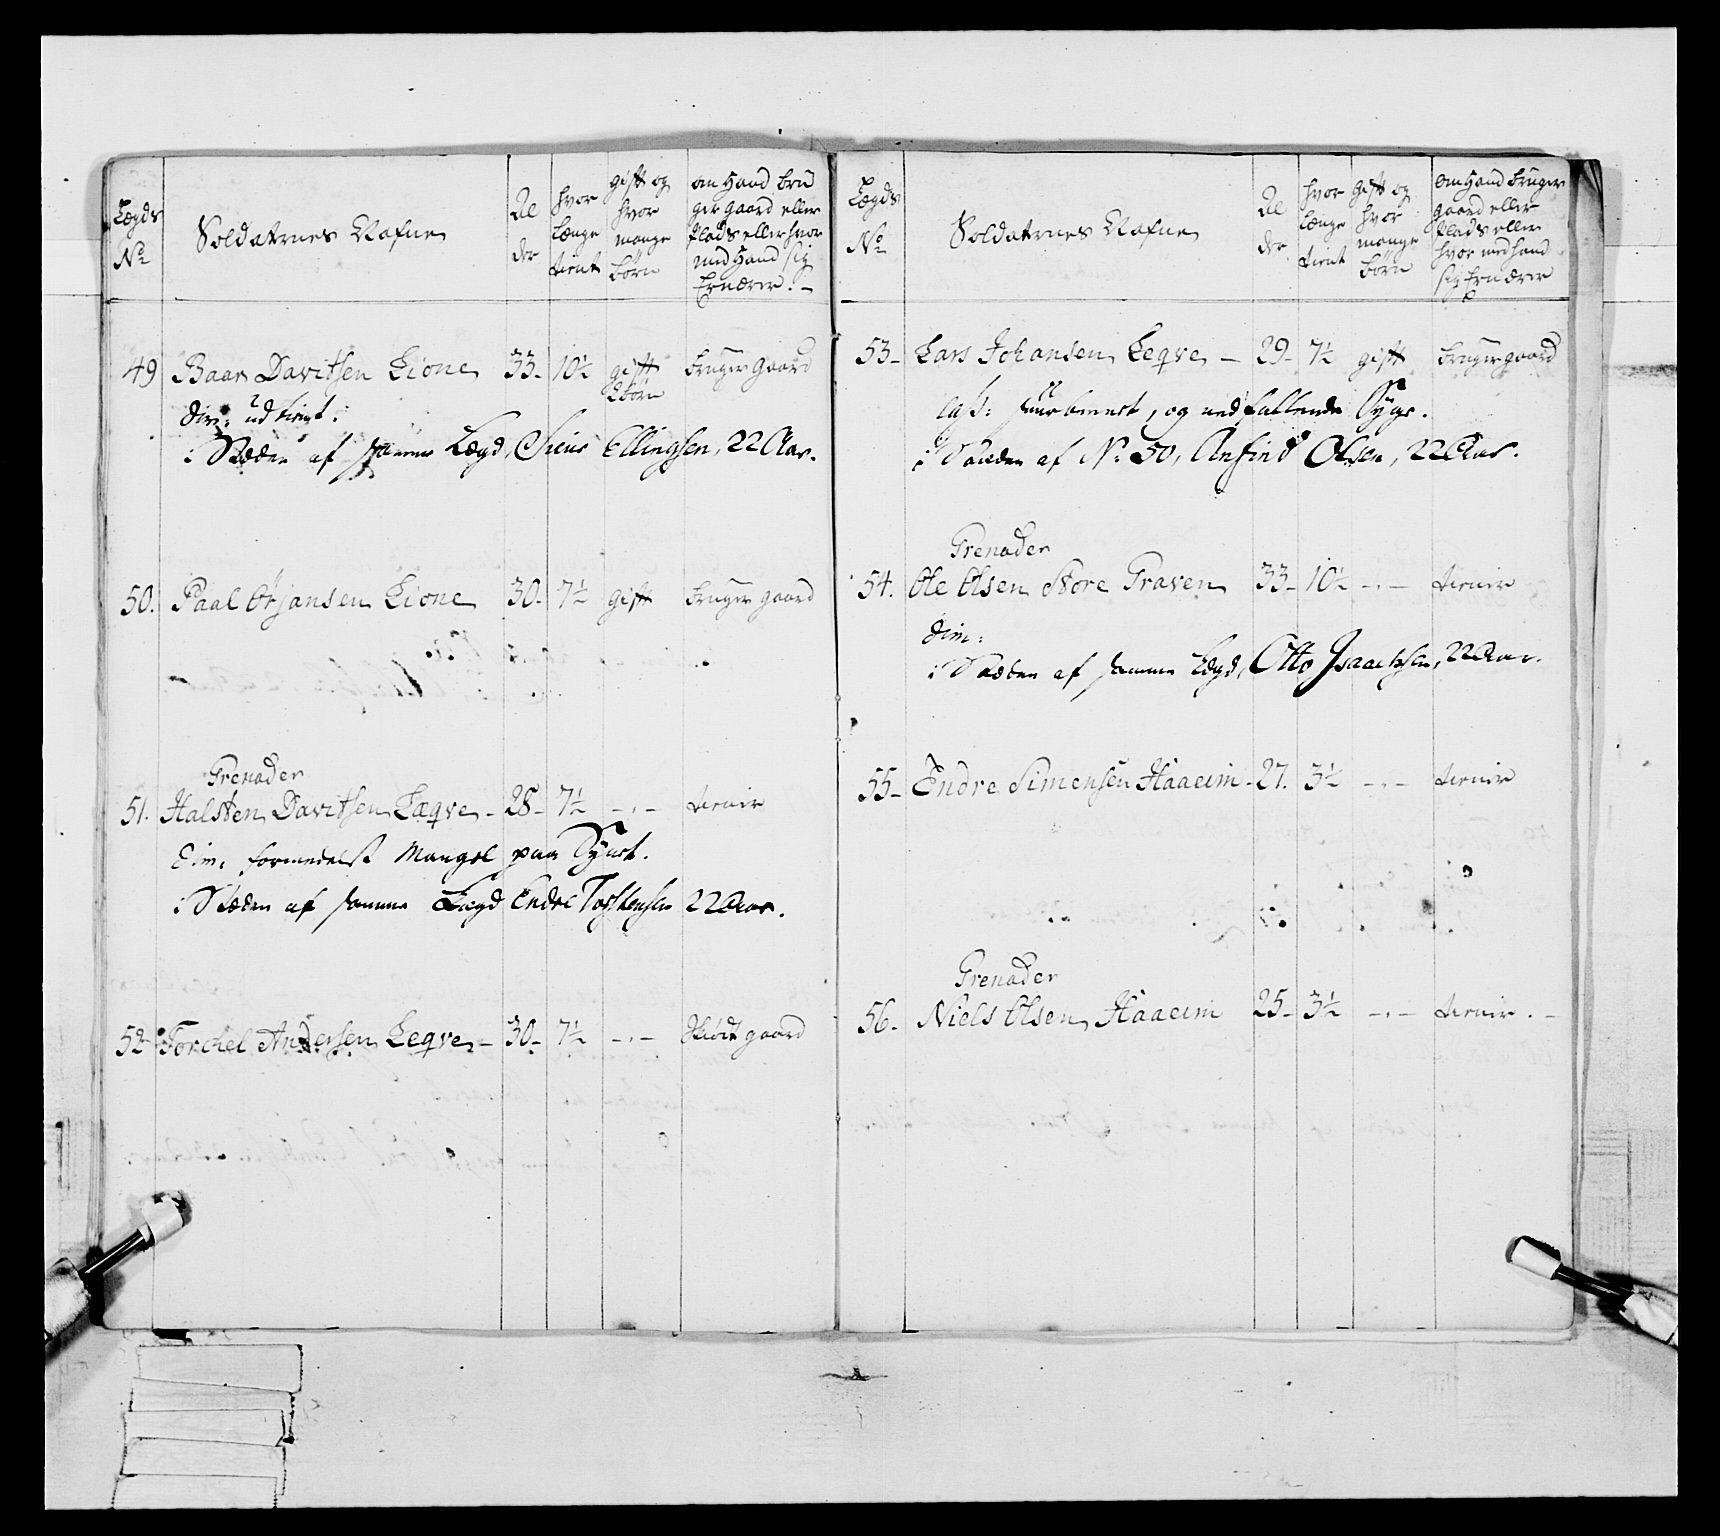 Lægds No
Soldaternes Nafne
Al der
hvor længe tient
gift og hvor mange børn
om Hand bruger gaard eller Plads eller hvor med Hand sig Ernærer.
49 Baar Davitsen Lione 33- 10½ gift 2 børn bruger gaard
dim: udtient.
i Stæden af samme Lægd, Siur Ellingsen, 22 Aar.
50. Paal Ørjansen Lione 30- 7½ gift bruger gaard
Grenader
51. Halsten Davitsen Læqve - 28- 7½ -.- tienir
Dim: formedelst Mangel paa Synet.
i Stæden af samme Lægd Endre Torstensen 22 Aar.
52 Torchel Andersen Leqve - 30- 7½ -.- Skiødt gaard
Lægds No
Soldaternes Nafne
Al der
hvor længe tient
gift og hvor mange børn
om Hand bruger gaard eller Plads eller hvor med hand sig Ernærer
53- Lars Johansen Leqve - 29- 7½ gift bruger gaard
og nedfallende Syge.
i Stæden af No 50, Anfind Olsen, 22 Aar.
Grenader
54. Ole Olsen Store Graven 33- 10½ -.- tienir
dim:
i Stæden af samme Lægd, Otto Isaachsen, 22 Aar.
55- Endre Simensen Haaeim - 27. 3½ -.- tienir
Grenader
56- Niels Olsen Haaeim 25- 3½ -.- tienir. -